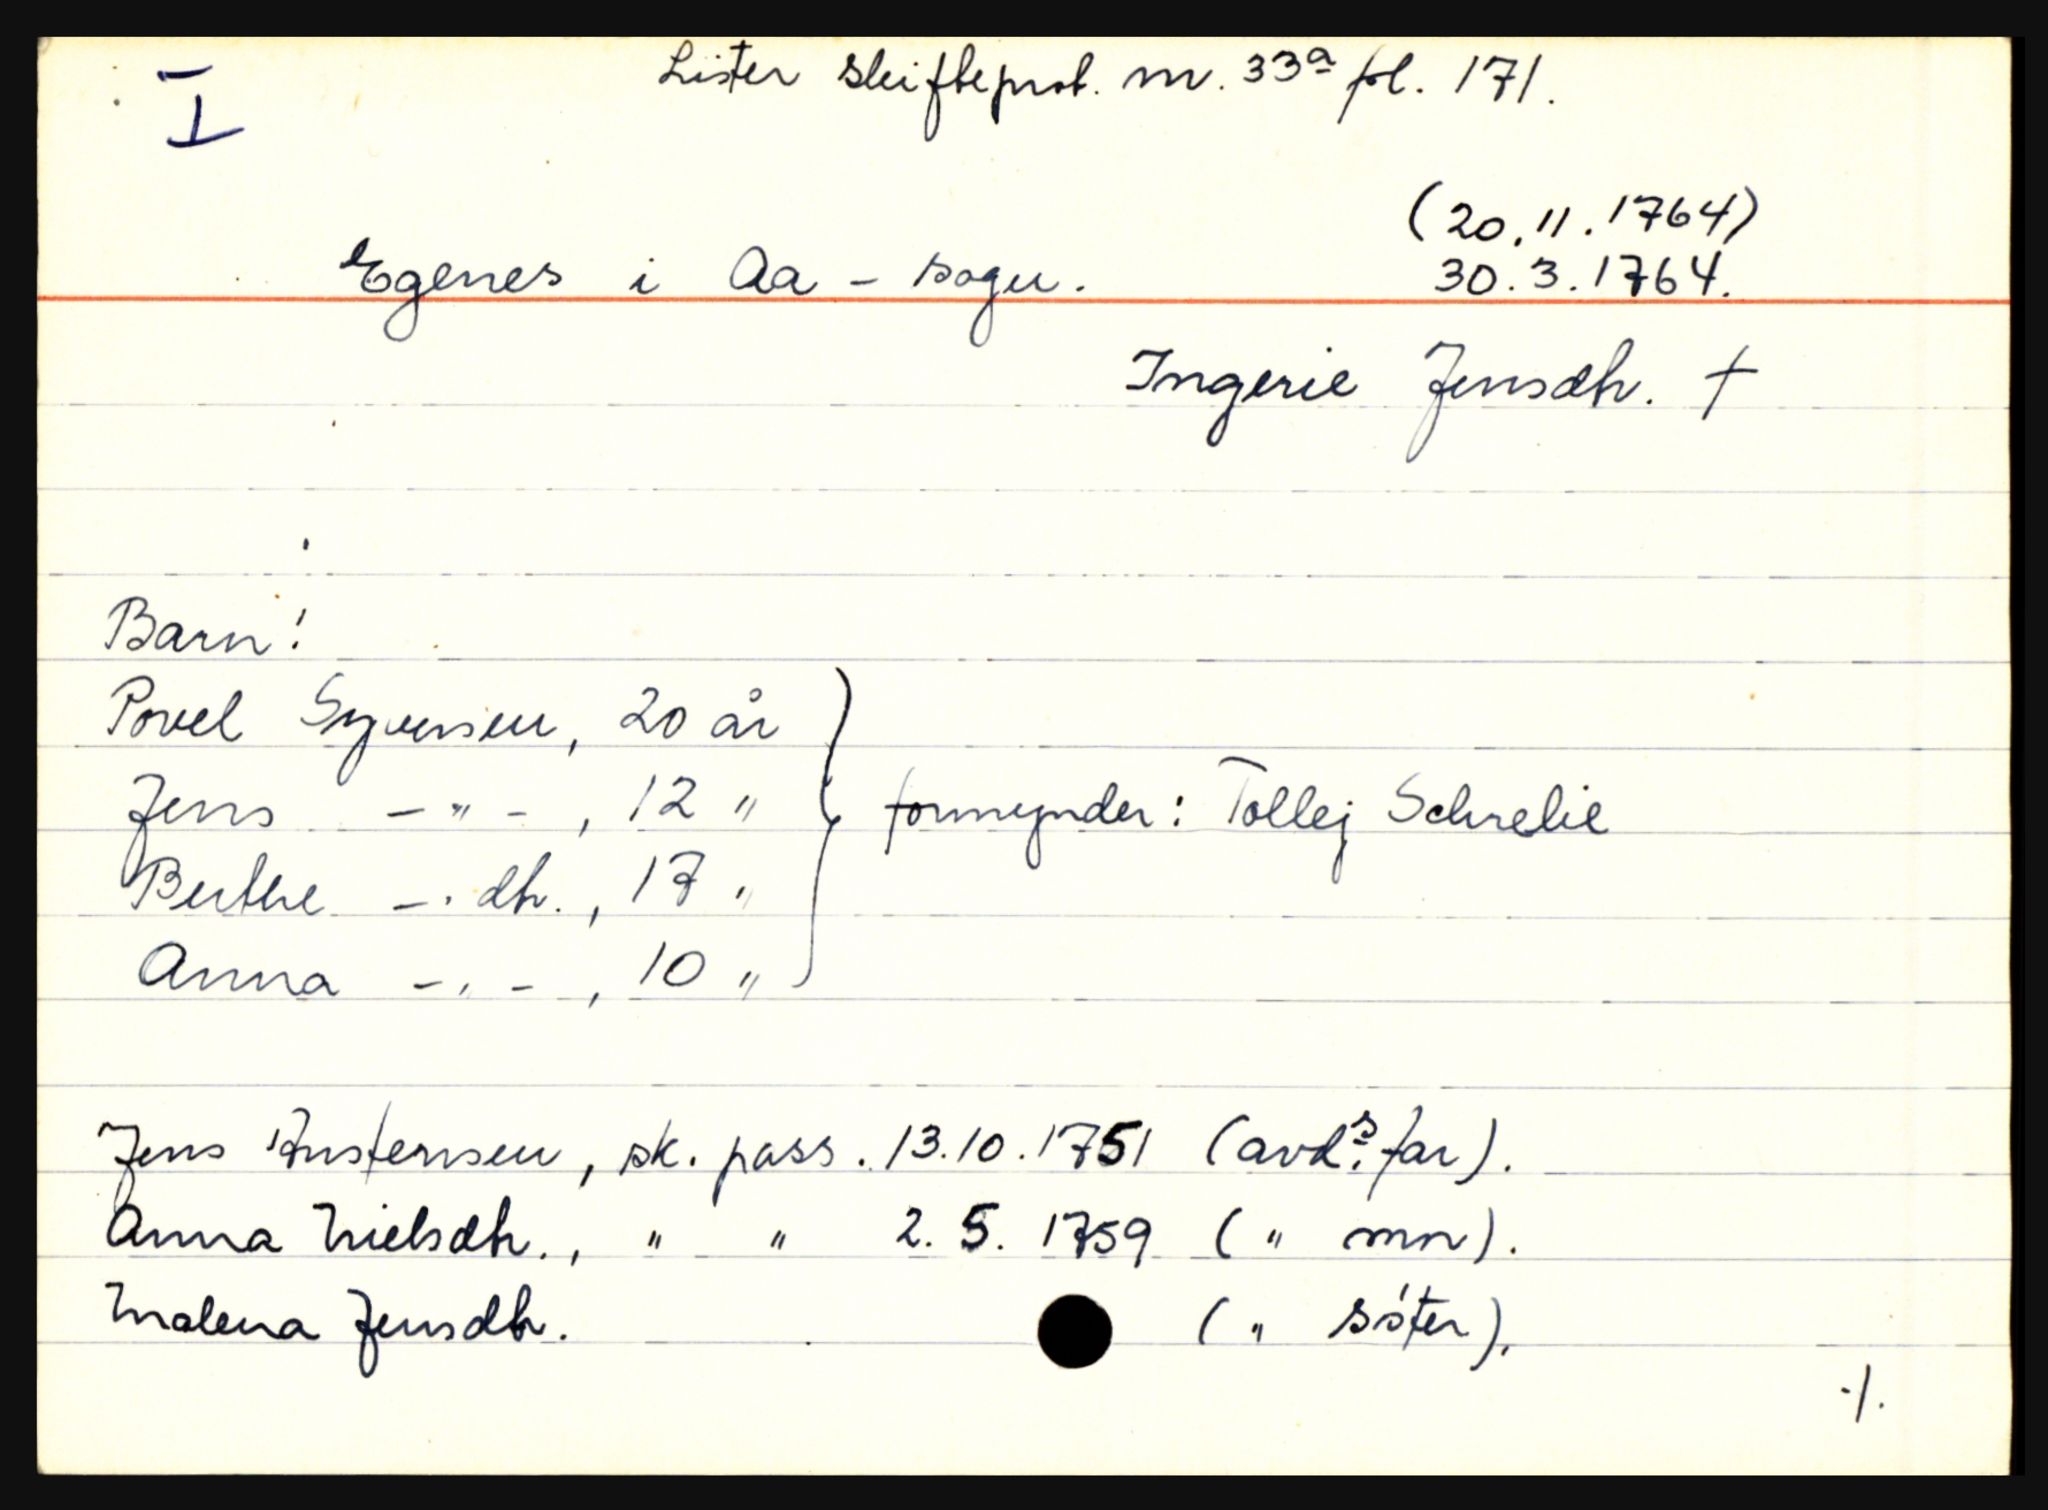 I
Lister skifteprot. nr. 33a fol. 171.
(20.11.1764)
Egenes i Aa - sogn.
30.3.1764.
Ingerie Jensdtr. †
Barn:
Povel Syversen, 20 år
Jens - " - , 12 "
formynder: Tollej Schrelie
Berthe - " dtr., 17 "
Anna - " - , 10 "
Jens Austensen, sk. pass. 13.10.1751 (avds. far).
Anna Nielsdtr., " " 2. 5. 1759 ( " mor).
Malena Jensdtr. ( " söster).
./.